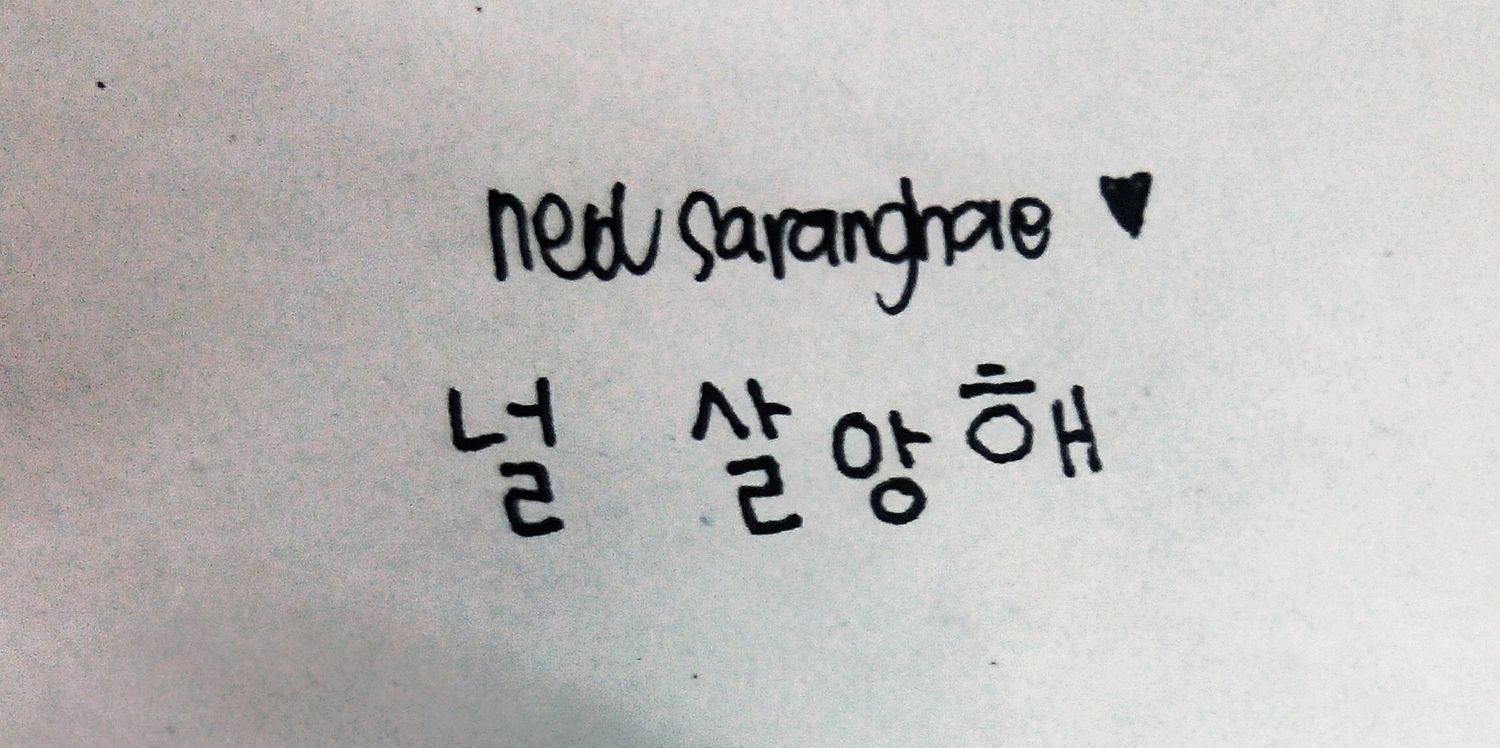 neol saranghae ♥
널 살앙해